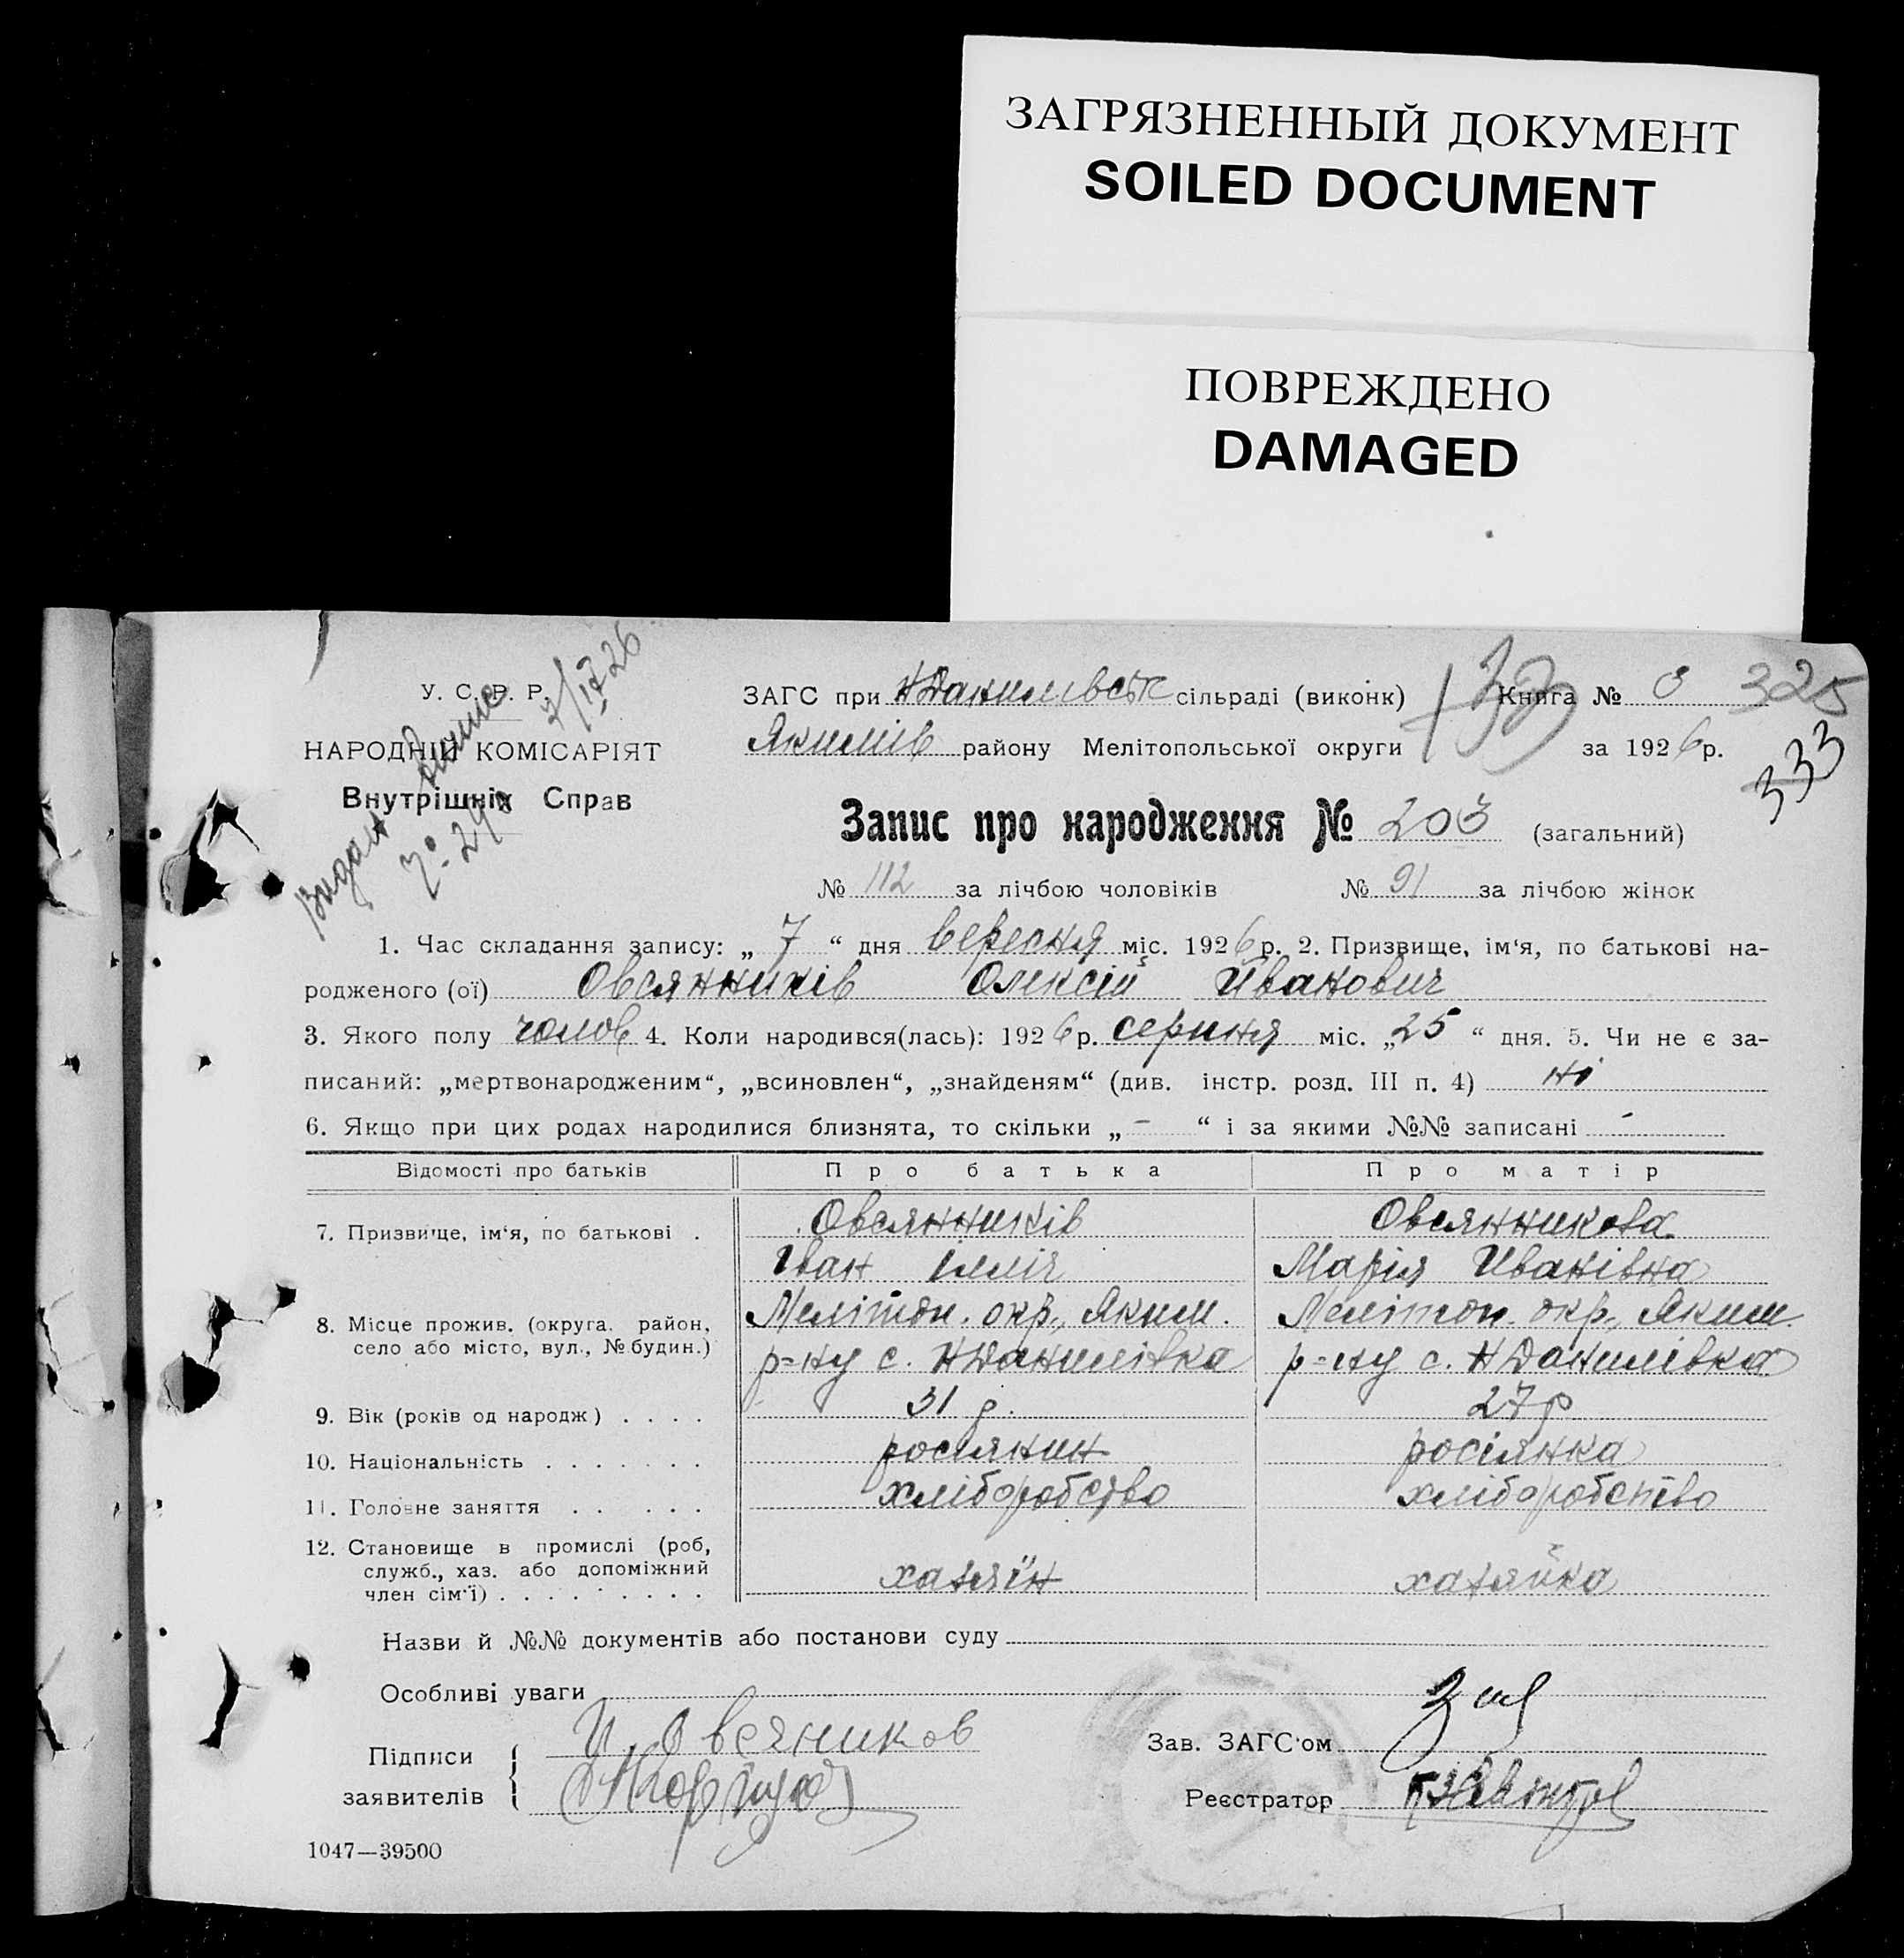 ЗАГРЯЗНЕННЫЙ ДОКУМЕНТ
SOILED DOCUMENT
ПОВРЕЖДЕНО
DAMAGED
У. С. Р. Р.
НАРОДНІЙ КОМІСАРІЯТ
Внутрішніх Справ
Видан 7/IX 26
№ 29
ЗАГС при НДанилівськ сільраді (виконк) Книга № 3 325
Якимів району Мелітопольської округи за 1926 р.
333
Запис про народження № 203 (загальний)
№ 112 за лічбою чоловіків № 91 за лічбою жінок
1. Час складання запису: „ 7 “ дня вересня міс. 1926 р. 2. Призвище, ім‘я, по батькові на-
родженого (ої) Овсянників Олексій Иванович
3. Якого полу чолов 4. Коли народився(лась): 1926 р. серпня міс. „25 “ дня. 5. Чи не є за-
писаний: „мертвонародженим“, „всиновлен“, „знайденям“ (див. інстр. розд. III п. 4) ні
6. Якщо при цих родах народилися близнята, то скільки „ - “ і за якими №№ записані -
Відомості про батьків Про батька Про матір
7. Призвище, ім‘я, по батькові . Овсянників Овсянникова
Іван Ілліч Марія Иванівна
8. Місце прожив. (округа, район, Мелітоп. окр., Яким. Мелітоп. окр., Яким.
село або місто, вул., № будин.) р=ну с. НДанилівка р=ну с. НДанилівка
9. Вік (років од народж) . . . . 31 р. 27 р
10. Національність . . . . . . . росіянин росіянка
11. Головне заняття . . . . . хліборобство хліборобство
12. Становище в промислі (роб,
служб., хаз. або допоміжний хазяїн хазяйка
член сім‘ї) . . . . . . . . .
Назви й №№ документів або постанови суду
Особливі уваги
Підписи И Овсяников
заявителів
Зав. ЗАГС‘ом
Реєстратор
1047—39500